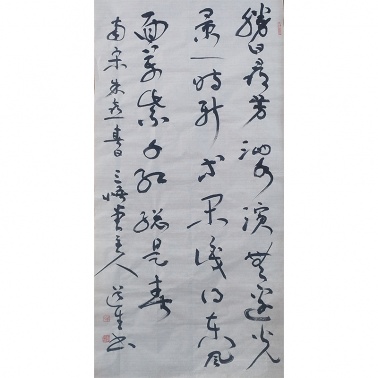 勝日尋芳泗水濱無邊光
景一時新等閒識得東風
面萬紫千紅總是春
南宋朱熹春日三悟堂主人道生书